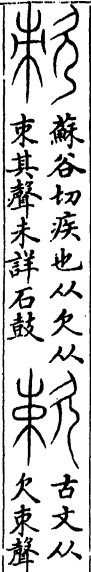 蘇谷切疾也从欠从
束其聲未詳石鼓
古文从
欠束聲